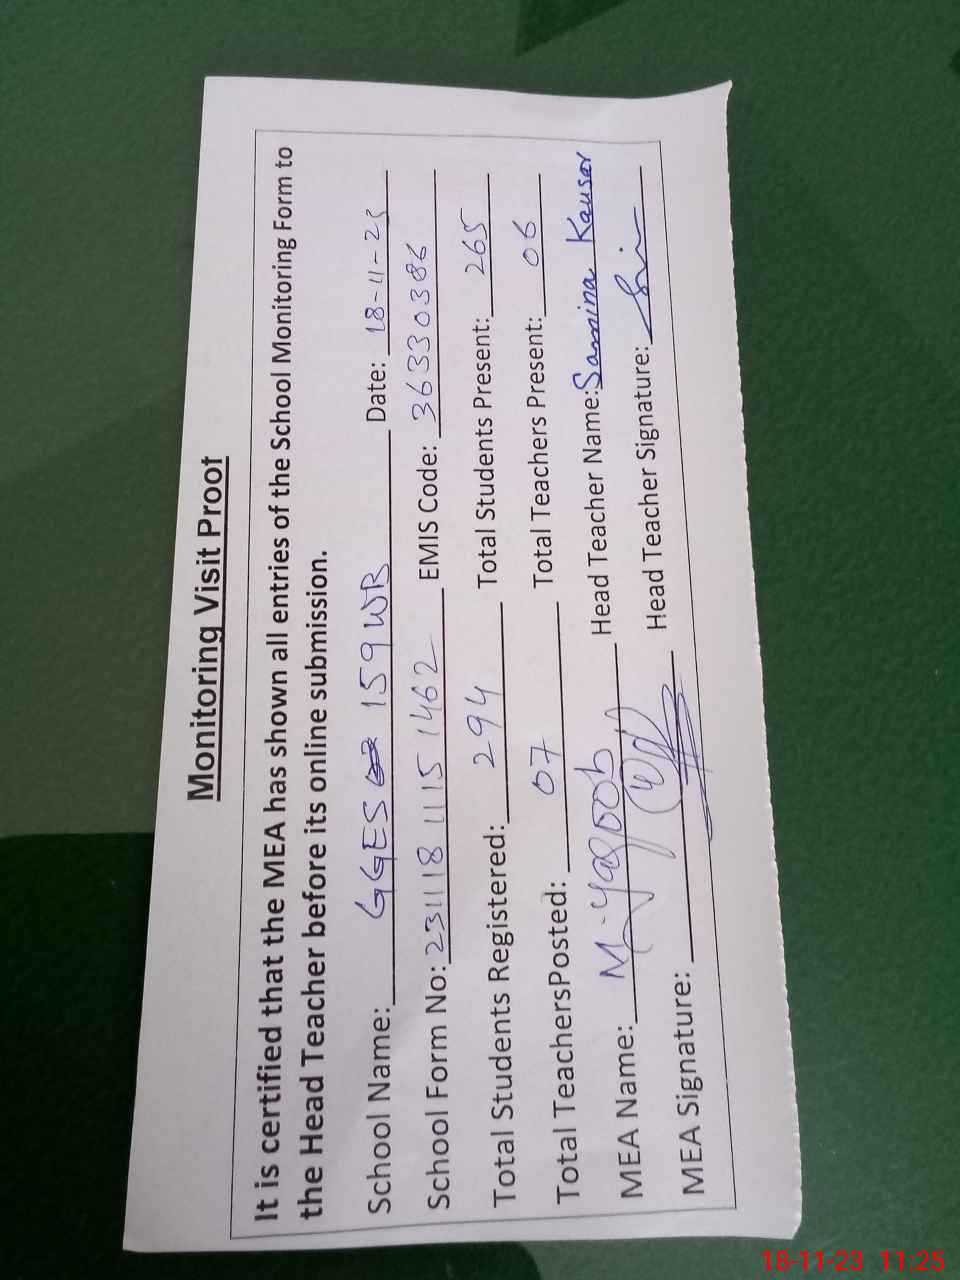 Monitoring Visit Proof
It is certified that the MEA has shown all entries of the School Monitoring Form to
the Head Teacher before its online submission.
School Name: GGES 159 WB Date: 18-11-23
School Form No: 231118 1115 1462 EMIS Code: 36330386
Total Students Registered: 294 Total Students Present: 265
Total TeachersPosted: 07 Total Teachers Present: 06
MEA Name: M. Yaqoob Head Teacher Name: Samina Kausar
MEA Signature: Head Teacher Signature:
18-11-23 11:25